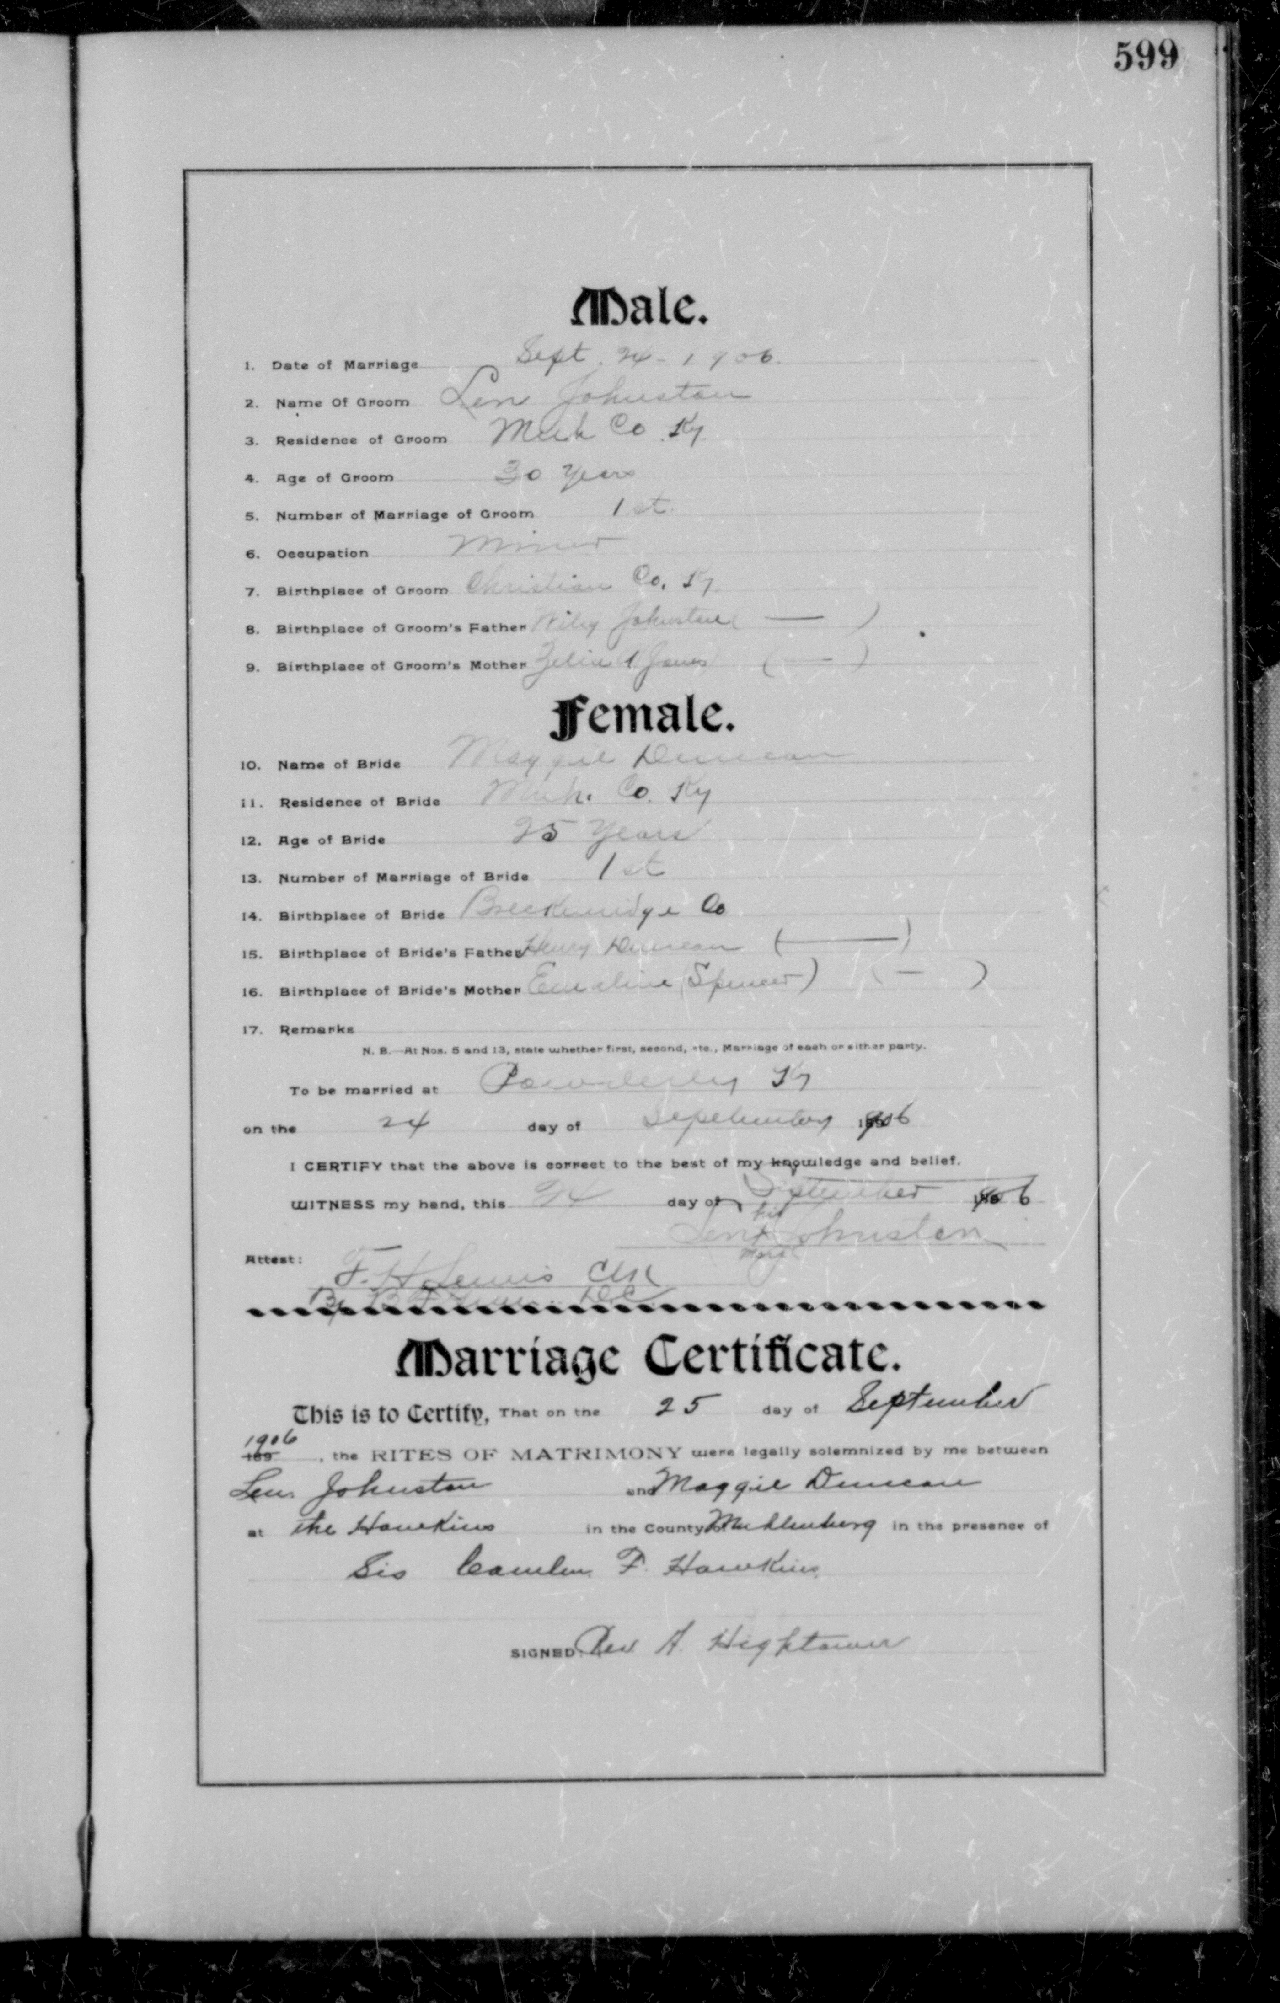 599
Male.
1. Date of Marriage Sept. 24 - 1906.
2. Name Of Groom Len Johnston
3. Residence of Groom Muh Co. Ky
4. Age of Groom 30 years
5. Number of Marriage of Groom 1st.
6. Occupation Miner
7. Birthplace of Groom Christian Co. Ky.
8. Birthplace of Groom's Father Wiley Johnston ( — )
9. Birthplace of Groom's Mother Jones ( — )
Female.
10. Name of Bride Maggie Duncan
11. Residence of Bride Muh. Co. Ky
12. Age of Bride 25 years
13. Number of Marriage of Bride 1st
14. Birthplace of Bride Breckenridge Co
15. Birthplace of Bride's Father Henry Duncan ( — )
16. Birthplace of Bride's Mother Emaline (Spencer) ( — )
17. Remarks
N. B.—At Nos. 5 and 13, state whether first, second, etc., Marriage of each or either party.
To be married at Powderly Ky
on the 24 day of September 1906
I CERTIFY that the above is correct to the best of my knowledge and belief.
WITNESS my hand, this 24 day of September 1906
his
Len x Johnston
mark
Attest: F. H. Lewis Clk
By D.C.
Marriage Certificate.
This is to Certify, That on the 25 day of September
1906
189 , the RITES OF MATRIMONY were legally solemnized by me between
Len Johnston and Maggie Duncan
at the Hawkins in the County of Muhlenberg in the presence of
Sis F. Hawkins
SIGNED: Rev A. Hightower